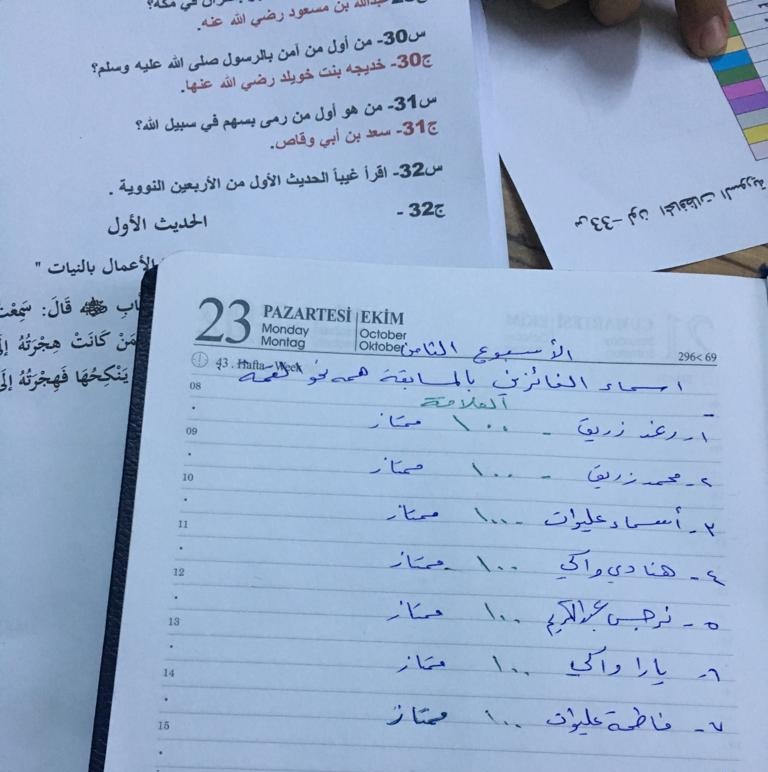 عبدالله بن مسعود رضي الله عنه.
س30- من أول من آمن بالرسول صلى الله عليه وسلم؟
ج30- خديجه بنت خويلد رضي الله عنها.
س31- من هو أول من رمى بسهم في سبيل الله؟
ج31- سعد بن أبي وقاص.
س32- اقرأ غيباً الحديث الأول من الأربعين النووية .
ج32 -
الحديث الأول
الأعمال بالنيات "
ﷺ قَالَ: سَمِعْتُ
مَنْ كَانَتْ هِجْرَتُهُ
يَنْكِحُهَا فَهِجْرَتُهُ
س33- لون المحافظات السورية
23 PAZARTESİ EKİM
Monday October
Montag Oktober
الأسبوع الثامن
296<69
43. Hafta - Week
08 اسماء الفائزين بالمسابقة همة نحو القمة
العلامة
09 ١- رغد زريق - ١٠٠ ممتاز
10 ٢- محمد زريق - ١٠٠ ممتاز
11 ٣- أسماء عليوات - ١٠٠ ممتاز
12 ٤- هنادي واكي ١٠٠ - ممتاز
13 ٥- نرجس عبدالكريم ١٠٠ ممتاز
14 ٦- يارا واكي ١٠٠ ممتاز
15 ٧- فاطمة عليوات ١٠٠ ممتاز